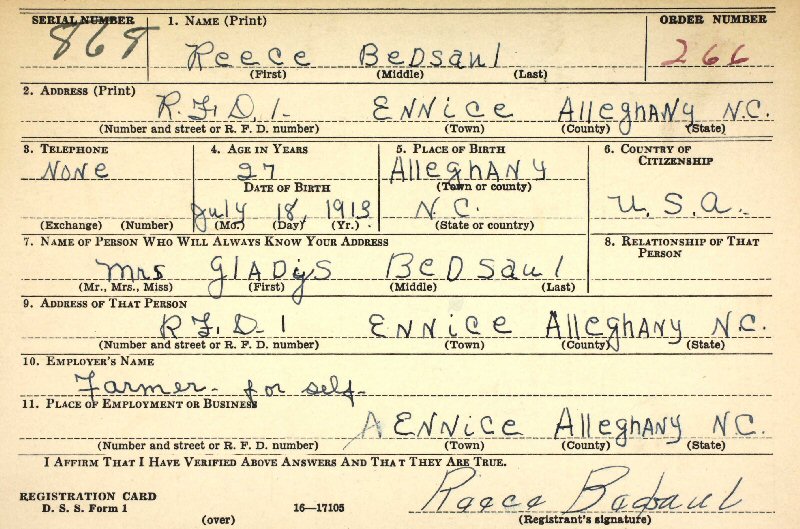 SERIAL NUMBER 1. NAME (Print) ORDER NUMBER
868 Reece Bedsaul 266
(First) (Middle) (Last)
2. ADDRESS (Print)
R.F.D. 1- ENNice AlleghANy N.C.
(Number and street or R. F. D. number) (Town) (County) (State)
3. TELEPHONE 4. AGE IN YEARS 5. PLACE OF BIRTH 6. COUNTRY OF CITIZENSHIP
None 27 AlleghANy
DATE OF BIRTH (Town or county)
July 18, 1913 N.C. U.S.A.
(Exchange) (Number) (Mo.) (Day) (Yr.) (State or country)
7. NAME OF PERSON WHO WILL ALWAYS KNOW YOUR ADDRESS 8. RELATIONSHIP OF THAT PERSON
Mrs GlADys BeDsaul
(Mr., Mrs., Miss) (First) (Middle) (Last)
9. ADDRESS OF THAT PERSON
R.F.D-1 ENNice AlleghANy N.C.
(Number and street or R. F. D. number) (Town) (County) (State)
10. EMPLOYER'S NAME
Farmer- for self-
11. PLACE OF EMPLOYMENT OR BUSINESS
ENNice AlleghANy N.C.
(Number and street or R. F. D. number) (Town) (County) (State)
I AFFIRM THAT I HAVE VERIFIED ABOVE ANSWERS AND THAT THEY ARE TRUE.
REGISTRATION CARD
D. S. S. Form 1 16—17105 Reece Bedsaul
(over) (Registrant's signature)